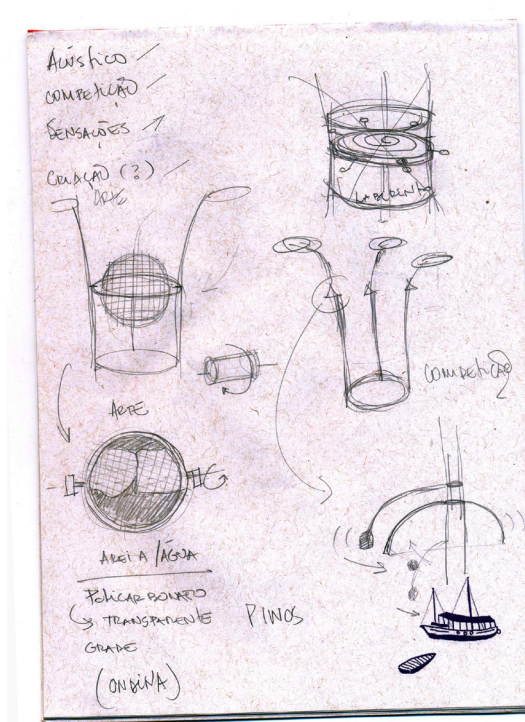 Acústico
COMPETIÇÃO
SENSAÇÕES
CRIAÇÃO (?)
ARTE
LABIRINTO
COMPETIÇÃO
ARTE
AREIA/ÁGUA
POLICARBONATO
TRANSPARENTE
GRADE
(ONDINA)
PINOS